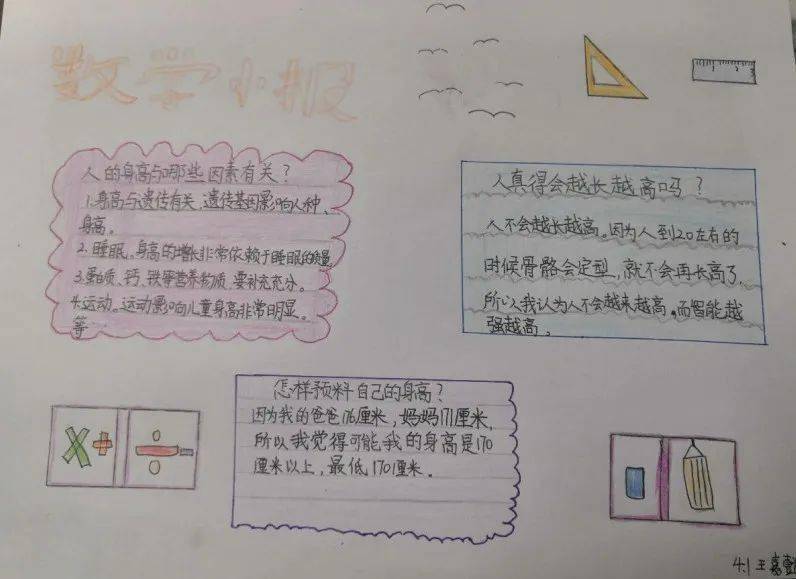 数学小报
人的身高与哪些因素有关？
1.身高与遗传有关，遗传基因影响人种、
身高。
2.睡眠。身高的增长非常依赖于睡眠的质量
3.蛋白质、钙、铁等营养物质，要补充充分。
4.运动。运动影响儿童身高非常明显。
等
人真得会越长越高吗？
人不会越长越高。因为人到20左右的
时候骨骼会定型，就不会再长高了，
所以我认为人不会越来越高。而智能越
强越高。
怎样预料自己的身高？
因为我的爸爸176厘米，妈妈171厘米，
所以我觉得可能我的身高是170
厘米以上，最低170厘米。
X+
÷-
1 2 3
4.1 王嘉